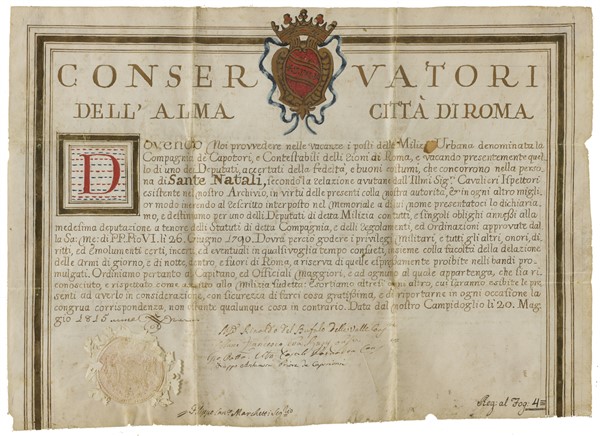 CONSERVATORI
DELL'ALMA CITTÀ DI ROMA
Dovendo Noi provvedere nelle vacanze i posti della Milizia Urbana denominata la
Compagnia de Capotori, e Contestabili delli Rioni di Roma, e vacando presentemente quel-
lo di uno de Deputati, accertati della fedeltà, e buoni costumi, che concorrono nella perso-
na di Sante Natali, secondo la relazione avutane dall' Illmi Sigri Cavalieri Ispettori
esistente nel nostro Archivio, in virtù delle presenti colla nostra autorità, & in ogni altro miglior
modo inerendo al Rescritto interposto nel Memoriale a di lui nome presentatoci lo dichiaria-
mo, e destiniamo per uno delli Deputati di detta Milizia con tutti, e singoli oblighi annessi alla
medesima deputazione a tenore delli Statuti di detta Compagnia, e delli Regolamenti, ed Ordinazioni approvate dal-
la Sa: Me: di P.P. Pio VI. li 26. Giugno 1790. Dovrà perciò godere i privilegi militari, e tutti gli altri onori, di-
ritti, ed Emolumenti certi, incerti, ed eventuali in qualsivoglia tempo consueti, assieme colla facoltà della delazione
delle Armi di giorno, e di notte, entro, e fuori di Roma, a riserva di quelle espressamente proibite nelli bandi pro-
mulgati. Ordiniamo pertanto al Capitano, ed Officiali Maggiori, e ad ognuno al quale appartenga, che sia ri-
conosciuto, e rispettato come addetto alla Milizia sudetta: Esortiamo altresì ogni altro, cui saranno esibite le pre-
senti ad averlo in considerazione, con sicurezza di farci cosa gratissima, e di riportarne in ogni occasione la
congrua corrispondenza, non ostante qualunque cosa in contrario. Data dal nostro Campidoglio li 20. Mag-
gio 1815
Rinaldo Del Bufalo della Valle
Marchetti
Reg. al Fog: 4